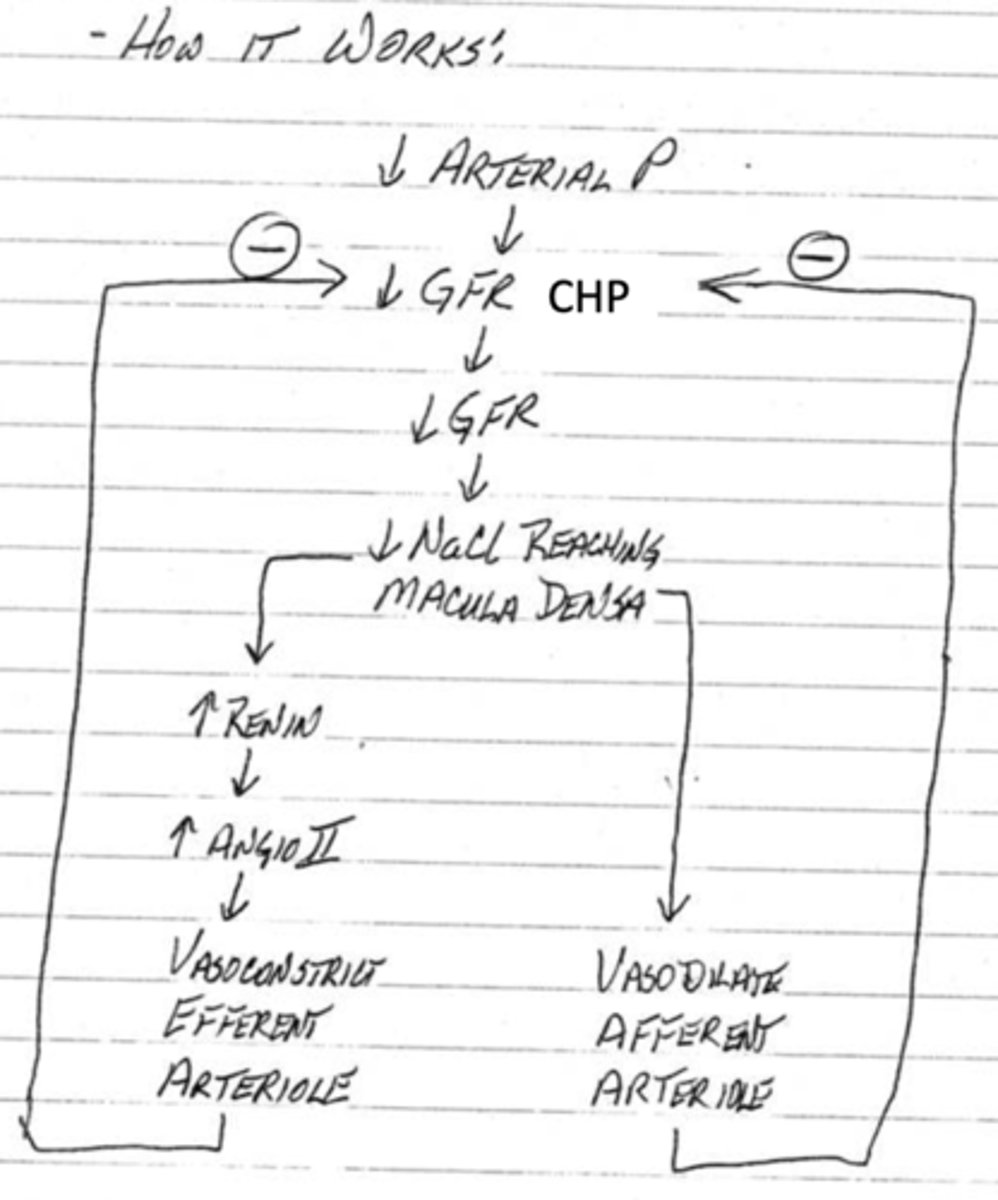 - HOW IT WORKS:
↓ ARTERIAL P
↓
⊖ ⊖
↓ GFR CHP
↓
↓ GFR
↓
↓ NaCl REACHING
MACULA DENSA
↑ RENIN
↓
↑ ANGIO II
↓
VASOCONSTRICT VASODILATE
EFFERENT AFFERENT
ARTERIOLE ARTERIOLE